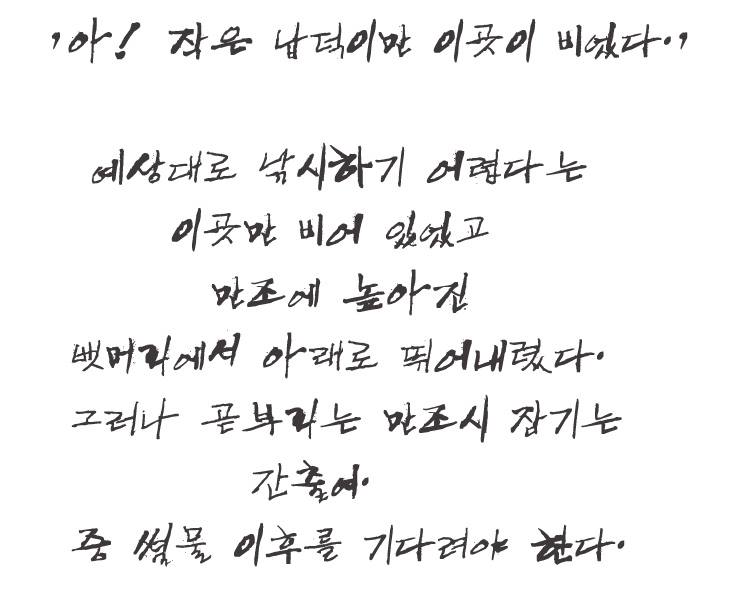 '아! 작은 납덕이만 이곳이 비었다.'
예상대로 낚시하기 어렵다는
이곳만 비어 있었고
만조에 높아진
뱃머리에서 아래로 뛰어내렸다.
그러나 곧부리는 만조시 잠기는
간출여.
중 썰물 이후를 기다려야 한다.